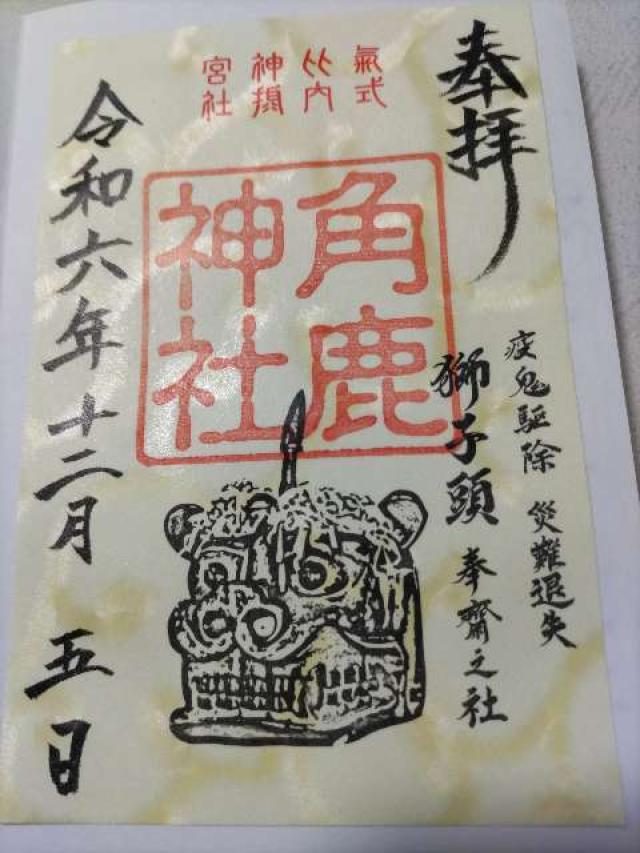 奉拝
氣式
比内
神揭
宮社
角鹿
神社
疫鬼驅除 災難退失
獅子頭 奉齋之社
令和六年十二月 五日